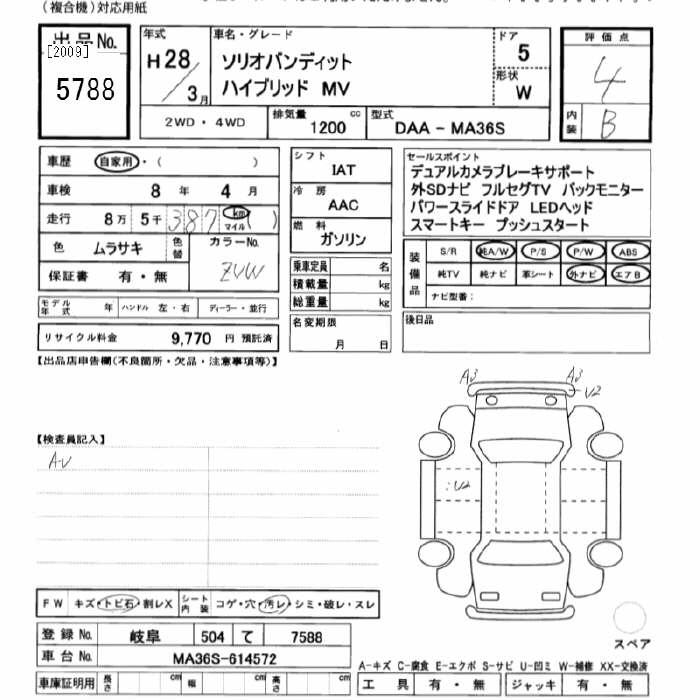 (複合機)対応用紙
出品No.
[2009]
5788
年式
H28/3月
車名・グレード
ソリオバンディット
ハイブリッド MV
ドア
5
形状
W
評価点
4
内装
B
2WD・4WD
排気量 1200 cc
型式 DAA-MA36S
車歴 自家用・( )
車検 8 年 4 月
走行 8万 5千 387 km マイル ( )
色 ムラサキ 色替
カラーNo.
ZVW
保証書 有・無
モデル年式 年 ハンドル 左・右 ディーラー・並行
リサイクル料金 9,770 円 預託済
シフト
IAT
冷房
AAC
燃料
ガソリン
乗車定員 名
積載量 kg
総重量 kg
名変期限
月 日
セールスポイント
デュアルカメラブレーキサポート
外SDナビ フルセグTV バックモニター
パワースライドドア LEDヘッド
スマートキー プッシュスタート
装備品
S/R 純A/W P/S P/W ABS
純TV 純ナビ 革シート 外ナビ エアB
ナビ型番:
後日品
【出品店申告欄(不良箇所・欠品・注意事項等)】
A3 A3
U2
【検査員記入】
AU
U2
FW キズ・トビ石・割レX シート内装 コゲ・穴・汚レ・シミ・破レ・スレ
登録No. 岐阜 504 て 7588
車台No. MA36S-614572
車庫証明用 長さ cm 幅 cm 高さ cm
スペア
A-キズ C-腐食 E-エクボ S-サビ U-凹ミ W-補修 XX-交換済
工具 有・無 ジャッキ 有・無